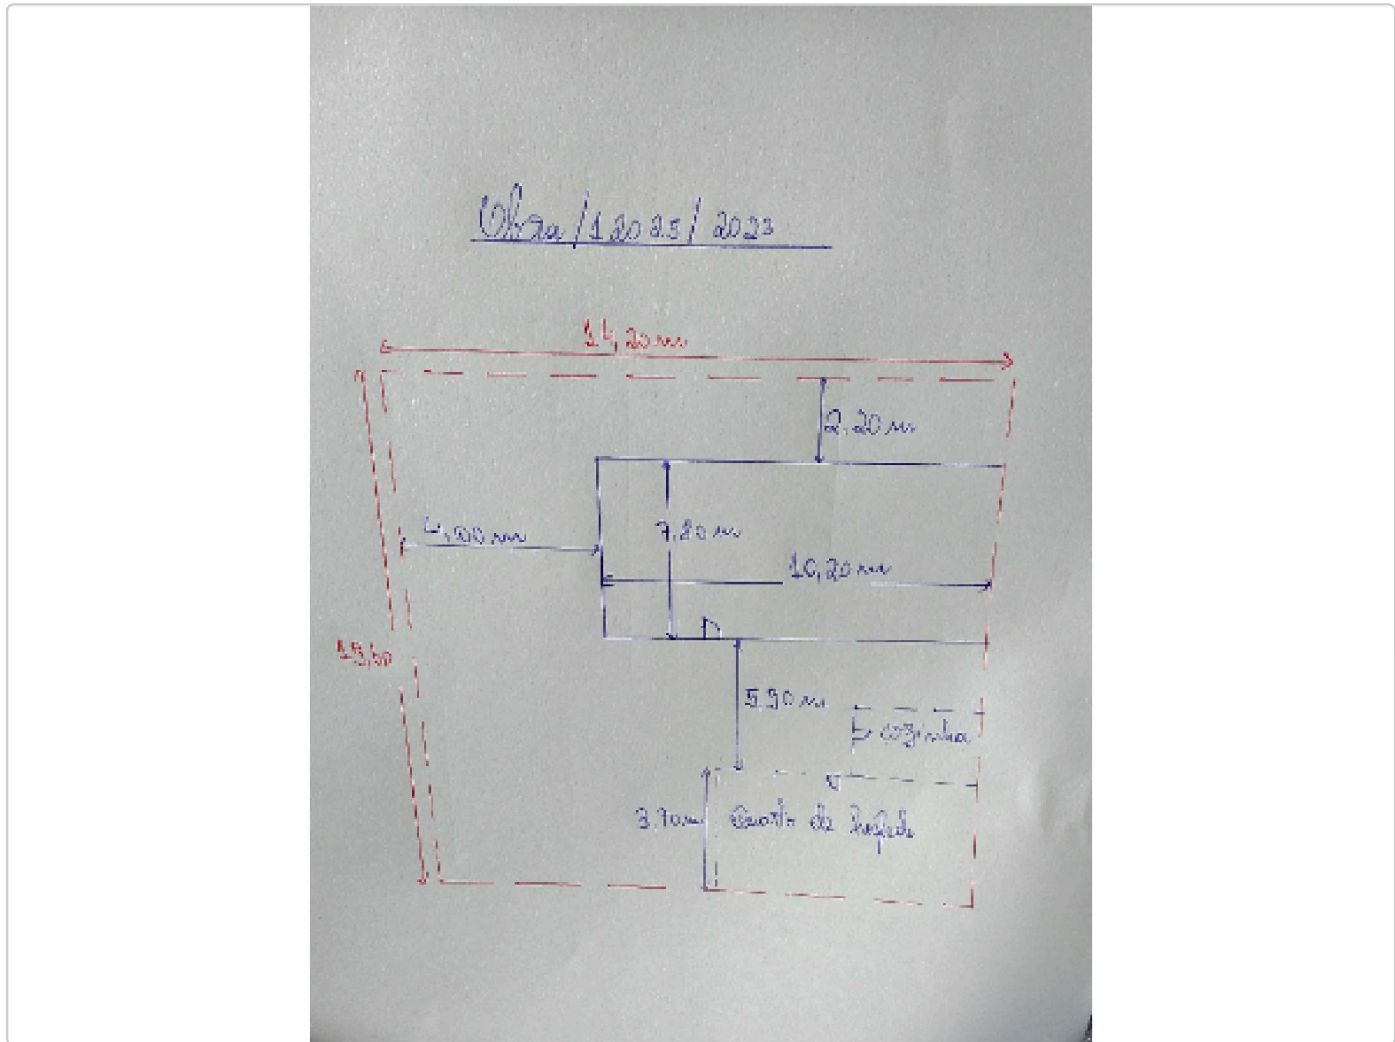 Obra/12025/2023
14,20m
2.20m
4,00m
7,80m
10,20m
5.90m
cozinha
3.70m
Quarto de